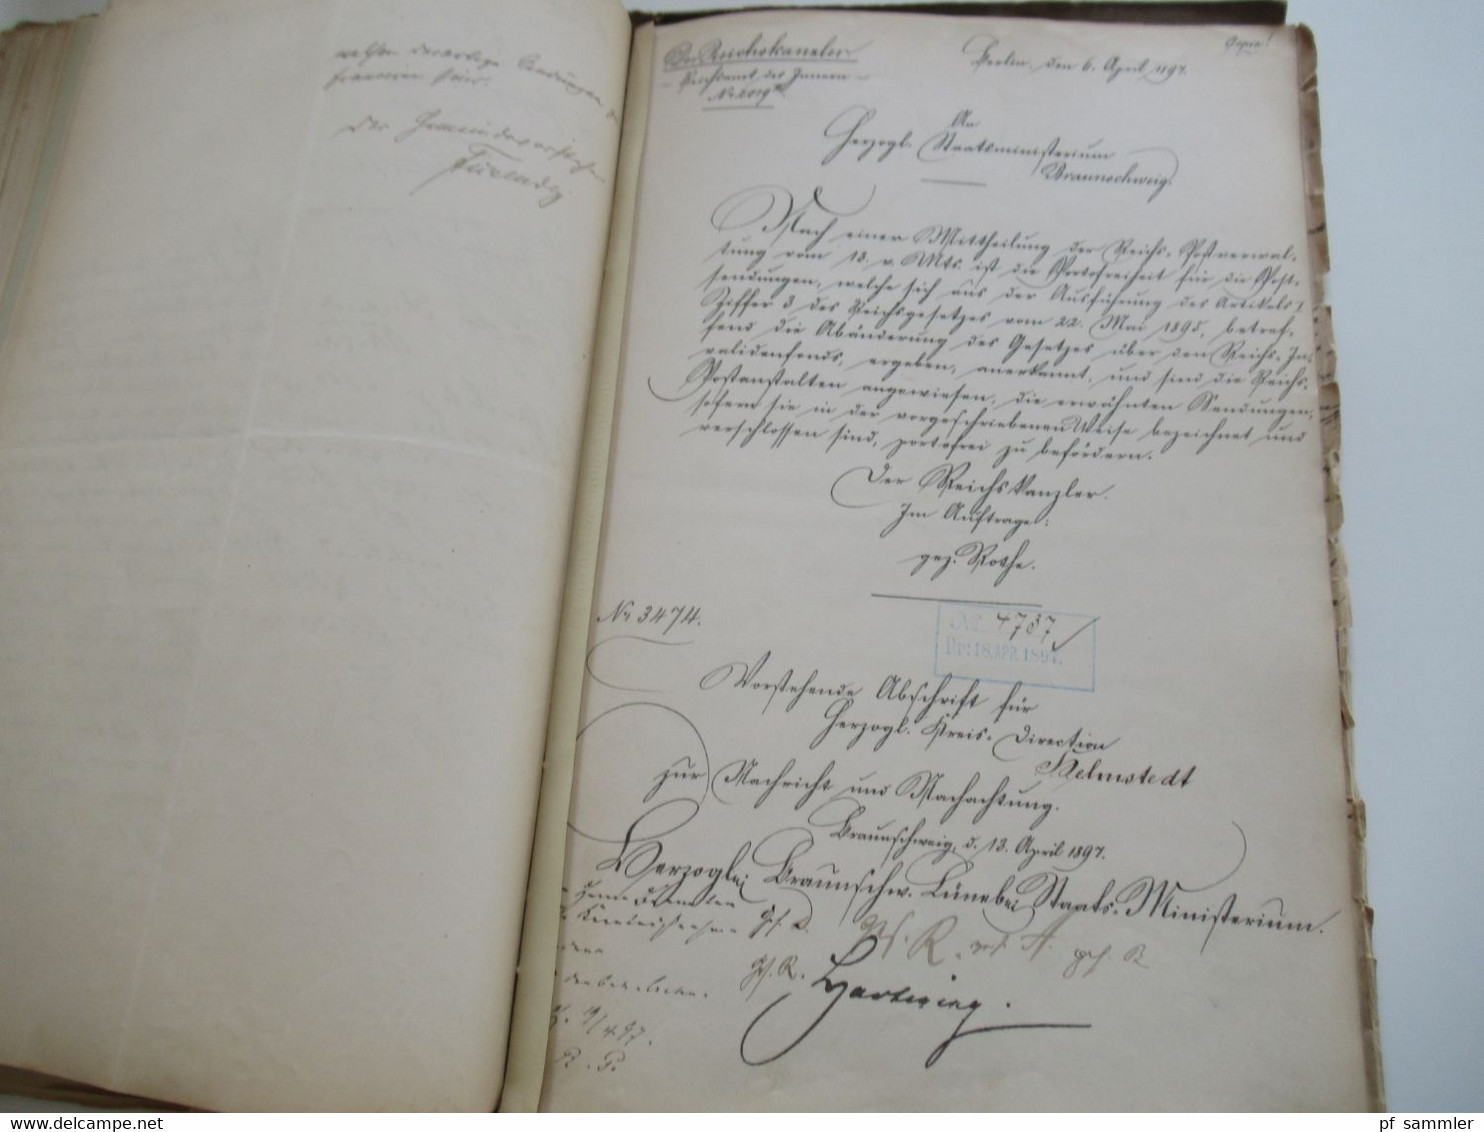 welche derartige Sendungen
Der Gemeindevorsteher
Copia!
Der Reichskanzler
Reichsamt des Innern
Berlin, den 6. April 1897.
An
Herzogl. Staatsministerium
Braunschweig.
Nach einer Mittheilung der Reichs-Postverwal-
tung vom 13. v. Mts. ist die Portofreiheit für die Post-
sendungen, welche sich aus der Ausführung des Artikels I
Ziffer 3 des Reichsgesetzes vom 22. Mai 1895, betref-
fend die Abänderung des Gesetzes über den Reichs-In-
validenfonds, ergeben, anerkannt, und sind die Reichs-
Postanstalten angewiesen, die erwähnten Sendungen,
sofern sie in der vorgeschriebenen Weise bezeichnet und
verschlossen sind, portofrei zu befördern.
Der Reichskanzler.
Im Auftrage:
gez. Rothe.
No 3474.
No 4787
Pr: 18. APR. 1897.
Vorstehende Abschrift für
Herzogl. Kreis-Direction
Helmstedt
zur Nachricht und Nachachtung.
Braunschweig, d. 13. April 1897.
Herzogl. Braunschw. Lüneb. Staats-Ministerium.
Hartwieg.
19/4 97.
pf_sammler